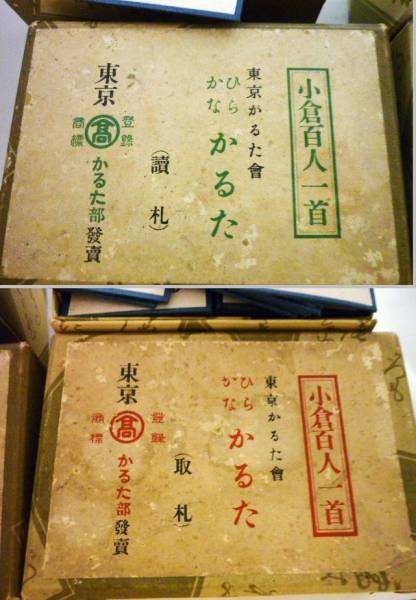 小倉百人一首
東京かるた會
ひら
かな
かるた
(讀札)
東京
登録
髙
商標
かるた部發賣
小倉百人一首
東京かるた會
ひら
かな
かるた
(取札)
東京
登録
髙
商標
かるた部發賣